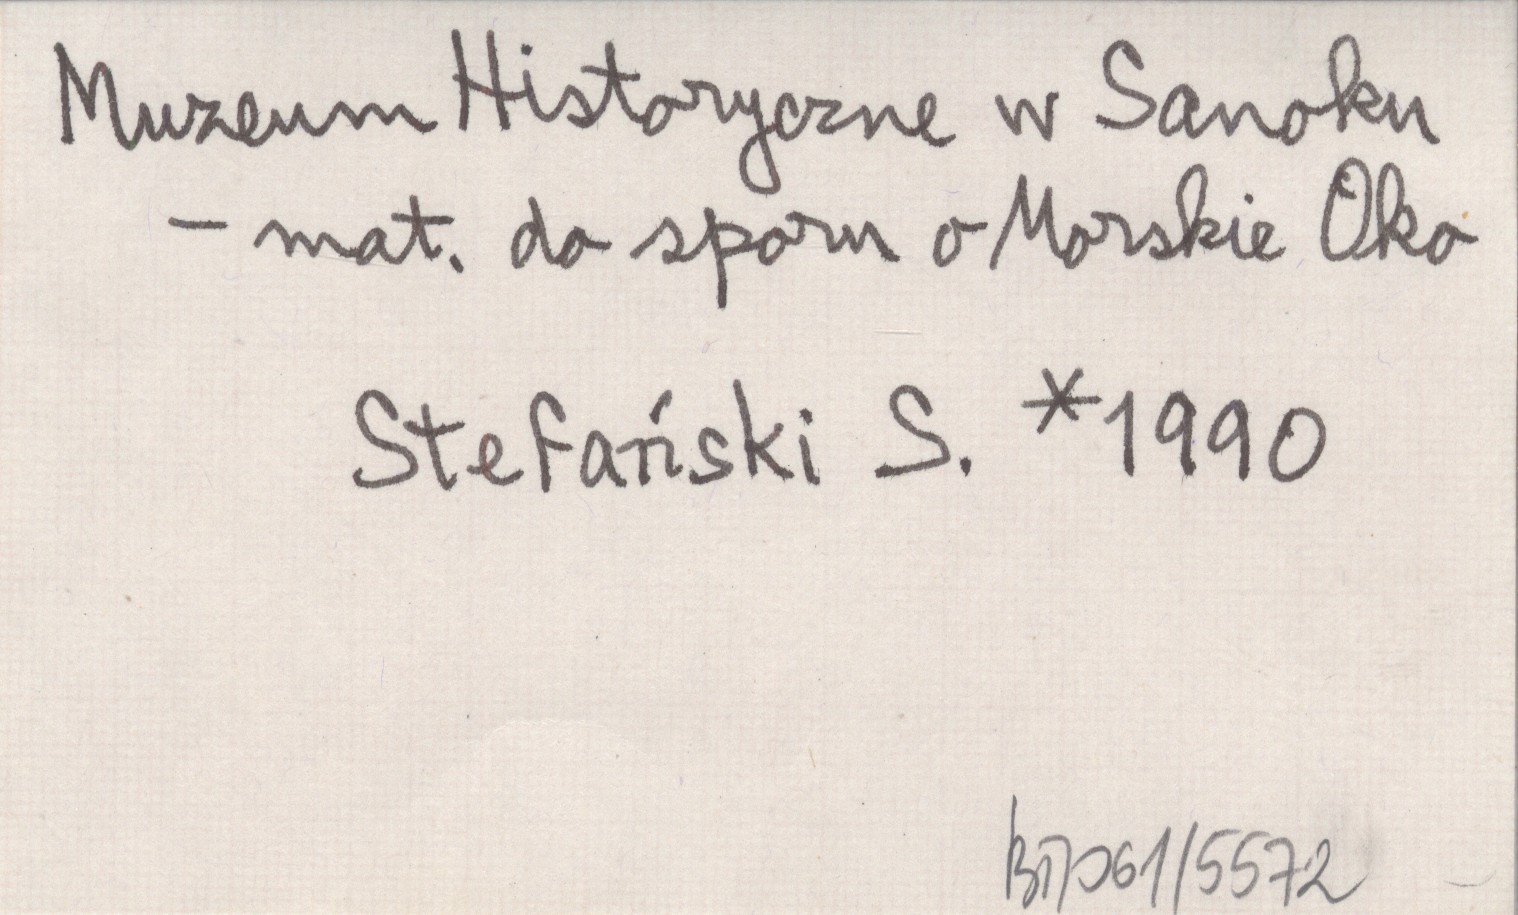 Muzeum Historyczne w Sanoku
- mat. do sporu o Morskie Oko
Stefański S. *1990